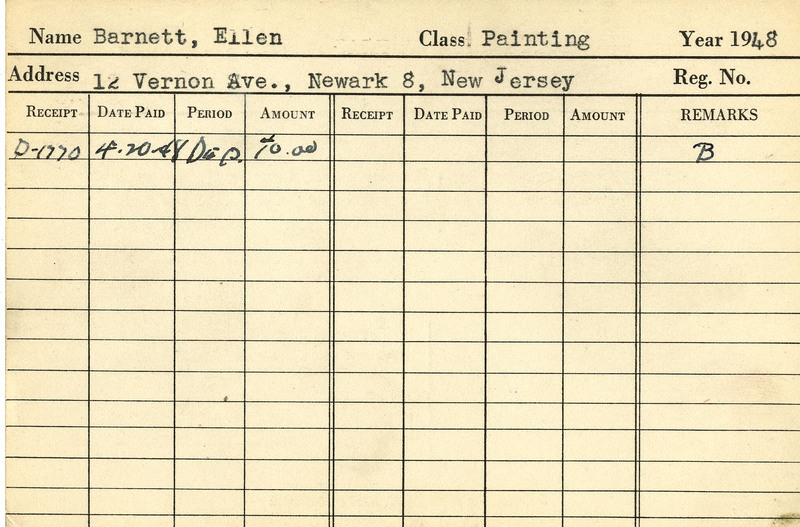 Name Barnett, Ellen Class Painting Year 1948
Address 12 Vernon Ave., Newark 8, New Jersey Reg. No.
RECEIPT DATE PAID PERIOD AMOUNT RECEIPT DATE PAID PERIOD AMOUNT REMARKS
D-1770 4-20-48 Dep. 10.00 B